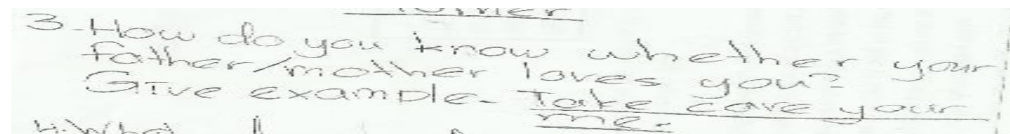 3. How do you know whether your
father/mother loves you?
Give example. Take care your
me.